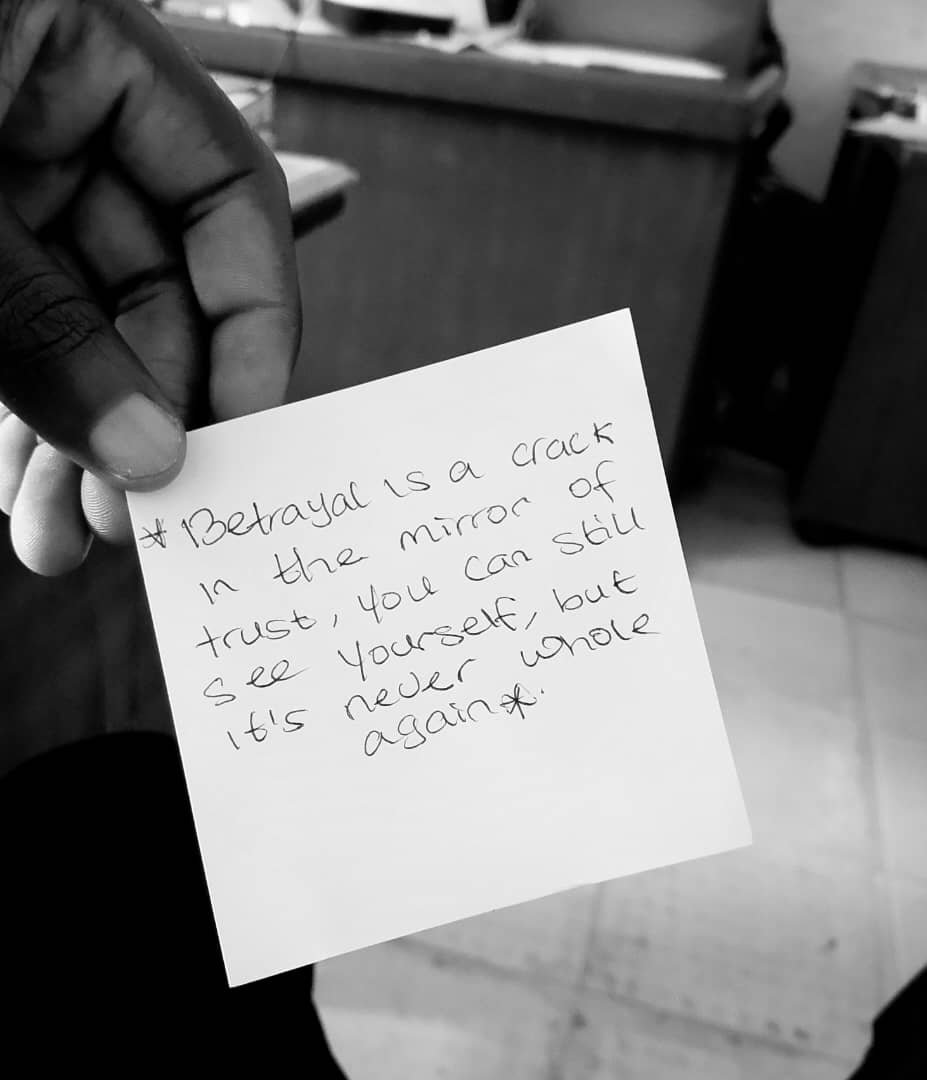 *Betrayal is a crack
in the mirror of
trust, you can still
see yourself, but
it's never whole
again*.